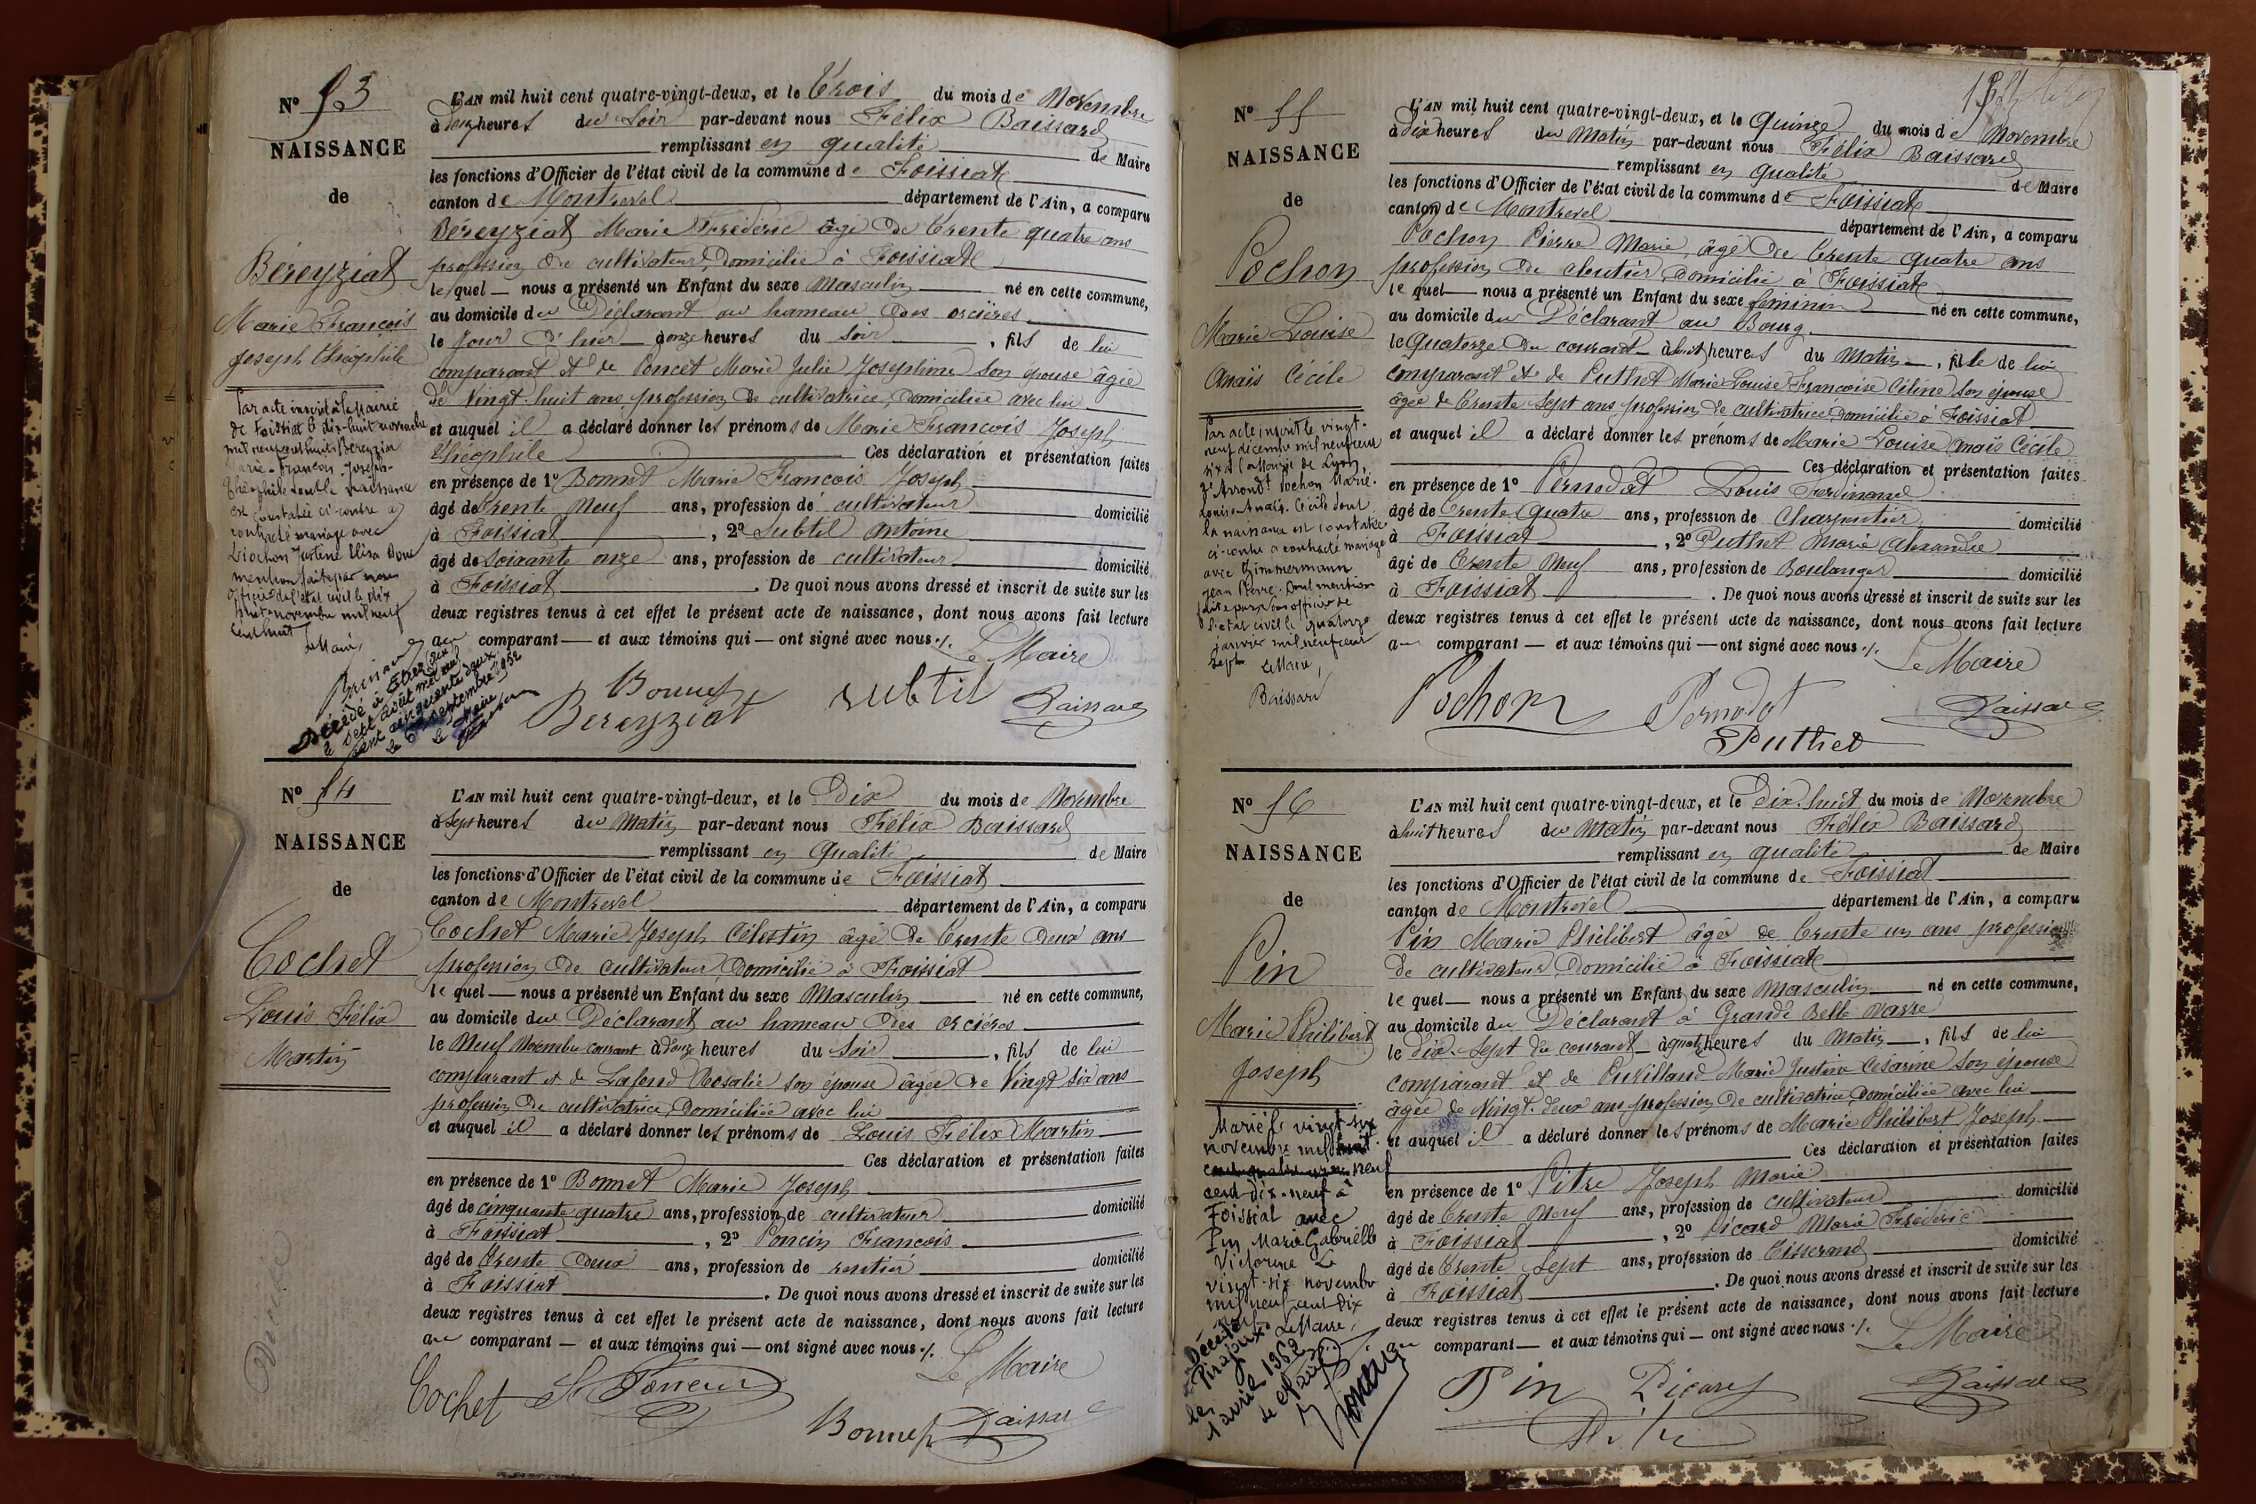 Nº 53
NAISSANCE
de
Béreyziat
Marie François
Joseph Théophile
Par acte inscrit à la mairie
de Foissiat le dix-huit novembre
mil neuf cent huit Béreyziat
Marie-François Joseph-
Théophile dont la naissance
est constatée ci-contre a
contracté mariage avec
Piochon Justine Elisa Dont
mention faite par nous
officier de l'état civil le dix
huit novembre mil neuf
cent huit
Le Maire,
Décédé à
le sept août mil neuf
cent cinquante deux
Le septembre 1952
Le Maire
L'AN mil huit cent quatre-vingt-deux, et le Trois du mois de Novembre
à heures du Soir par-devant nous Félix Baissard
remplissant en qualité de Maire
les fonctions d'Officier de l'état civil de la commune de Foissiat
canton de Montrevel département de l'Ain, a comparu
Béreyziat Marie Frédéric âgé de Trente quatre ans
profession de cultivateur Domicilié à Foissiat
lequel — nous a présenté un Enfant du sexe Masculin né en cette commune,
au domicile du Déclarant au hameau des orcières
le Jour d'hier à onze heures du soir , fils de lui
comparant et de Poncet Marie Julie Joséphine son épouse âgée
de Vingt-huit ans profession de cultivatrice, domiciliée avec lui
et auquel il a déclaré donner les prénoms de Marie François Joseph
Théophile Ces déclaration et présentation faites
en présence de 1º Bonnet Marie François Joseph
âgé de Trente Neuf ans, profession de cultivateur domicilié
à Foissiat , 2º Subtil Antoine
âgé de Soixante onze ans, profession de cultivateur domicilié
à Foissiat . De quoi nous avons dressé et inscrit de suite sur les
deux registres tenus à cet effet le présent acte de naissance, dont nous avons fait lecture
au comparant — et aux témoins qui — ont signé avec nous ./.
Le Maire
Bonnet
Bereyziat subtil Baissard
Nº 54
NAISSANCE
de
Cochet
Louis Félix
Martin
L'AN mil huit cent quatre-vingt-deux, et le Dix du mois de Novembre
à Sept heures du Matin par-devant nous Félix Baissard
remplissant en Qualité de Maire
les fonctions d'Officier de l'état civil de la commune de Foissiat
canton de Montrevel département de l'Ain, a comparu
Cochet Marie Joseph Célestin âgé de Trente Deux ans
profession de cultivateur Domicilié à Foissiat
le quel — nous a présenté un Enfant du sexe Masculin né en cette commune,
au domicile du Déclarant au hameau des orcières
le Neuf Novembre courant à onze heures du Soir , fils de lui
comparant et de Lafond Rosalie son épouse âgée de Vingt six ans
profession de cultivatrice, Domiciliée avec lui
et auquel il a déclaré donner les prénoms de Louis Félix Martin
Ces déclaration et présentation faites
en présence de 1º Bonnet Marie Joseph
âgé de cinquante quatre ans, profession de cultivateur domicilié
à Foissiat , 2º Poncin François
âgé de Trente Deux ans, profession de rentier domicilié
à Foissiat . De quoi nous avons dressé et inscrit de suite sur les
deux registres tenus à cet effet le présent acte de naissance, dont nous avons fait lecture
au comparant — et aux témoins qui — ont signé avec nous ./.
Le Maire
Cochet
Bonnet Baissard
Nº 55
NAISSANCE
de
Pochon
Marie Louise
Anaïs Cécile
Par acte inscrit le vingt-
neuf décembre mil neuf cent
six à la Mairie de Lyon,
Arrondt Pochon Marie-
Louise Anaïs Cécile dont
la naissance est constatée
ci-contre a contracté mariage
avec Zimmermann
Jean Pierre. Dont mention
faite par nous officier de
l'état civil le quatorze
janvier mil neuf cent
sept
Le Maire,
Baissard
L'AN mil huit cent quatre-vingt-deux, et le Quinze du mois de Novembre
à Dix heures du Matin par-devant nous Félix Baissard
remplissant en Qualité de Maire
les fonctions d'Officier de l'état civil de la commune de Foissiat
canton de Montrevel département de l'Ain, a comparu
Pochon Pierre Marie, âgé de Trente quatre ans
profession de cloutier, domicilié à Foissiat
le quel — nous a présenté un Enfant du sexe féminin né en cette commune,
au domicile du Déclarant au Bourg
le Quatorze du courant à huit heures du Matin , fille de lui
comparant et de Puthet Marie Louise Françoise Céline son épouse
âgée de Trente Sept ans profession de cultivatrice Domiciliée à Foissiat
et auquel il a déclaré donner les prénoms de Marie Louise Anaïs Cécile
Ces déclaration et présentation faites
en présence de 1º Pernodat Louis Ferdinand
âgé de Trente Quatre ans, profession de Charpentier domicilié
à Foissiat , 2º Puthet Marie Alexandre
âgé de Trente Neuf ans, profession de Boulanger domicilié
à Foissiat . De quoi nous avons dressé et inscrit de suite sur les
deux registres tenus à cet effet le présent acte de naissance, dont nous avons fait lecture
au comparant — et aux témoins qui — ont signé avec nous ./.
Le Maire
Pochon Pernodat Baissard
Puthet
Nº 56
NAISSANCE
de
Pin
Marie Philibert
Joseph
Marié le vingt-six
novembre mil
neuf
cent dix-neuf à
Foissiat avec
Pin Marie Gabrielle
Victorine Le
vingt-six novembre
mil neuf cent dix
neuf Le Maire,
Décédé
Pirajoux
le
1 avril 1962
L'AN mil huit cent quatre-vingt-deux, et le Dix-huit du mois de Novembre
à huit heures du Matin par-devant nous Félix Baissard
remplissant en qualité de Maire
les fonctions d'Officier de l'état civil de la commune de Foissiat
canton de Montrevel département de l'Ain, a comparu
Pin Marie Philibert âgé de Trente un ans profession
de cultivateur, Domicilié à Foissiat
le quel — nous a présenté un Enfant du sexe Masculin né en cette commune,
au domicile du Déclarant à Grande Belle Vavre
le Dix-Sept du courant à quatre heures du Matin , fils de lui
comparant et de Puvilland Marie Justine Césarine son épouse
âgée de Vingt-Deux ans profession de cultivatrice Domiciliée avec lui
et auquel il a déclaré donner les prénoms de Marie Philibert Joseph
Ces déclaration et présentation faites
en présence de 1º Pitre Joseph Marie
âgé de Trente Neuf ans, profession de cultivateur domicilié
à Foissiat , 2º Picard Marie Frédéric
âgé de Trente Sept ans, profession de Tisserand domicilié
à Foissiat . De quoi nous avons dressé et inscrit de suite sur les
deux registres tenus à cet effet le présent acte de naissance, dont nous avons fait lecture
au comparant — et aux témoins qui — ont signé avec nous ./.
Le Maire
Pin Picard Baissard
Pitre